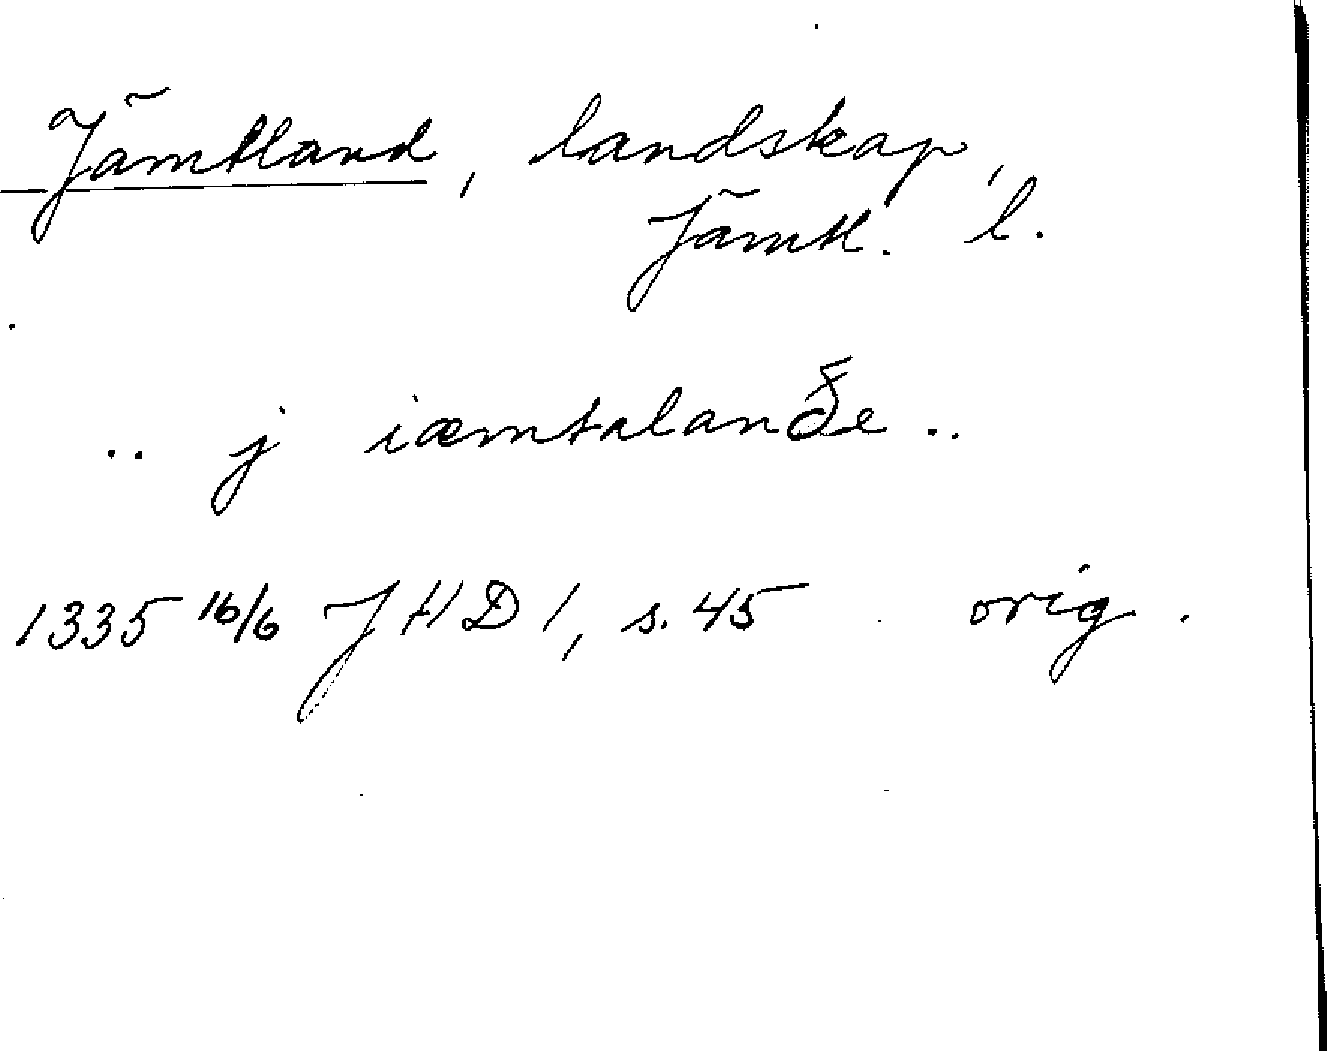 Jämtland, landskap,
Jämtl. l.
.. j iæmtalanðe ..
1335 16/6 JHD 1, s. 45 orig.